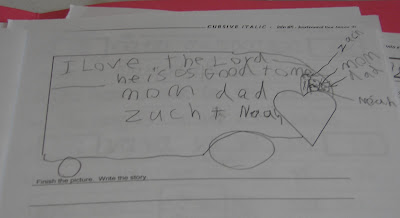 CURSIVE ITALIC
I Love the Lord
he is os Good to me
mom dad
zuch & Noah
zach
mom
Dad
Noah
Finish the picture. Write the story.